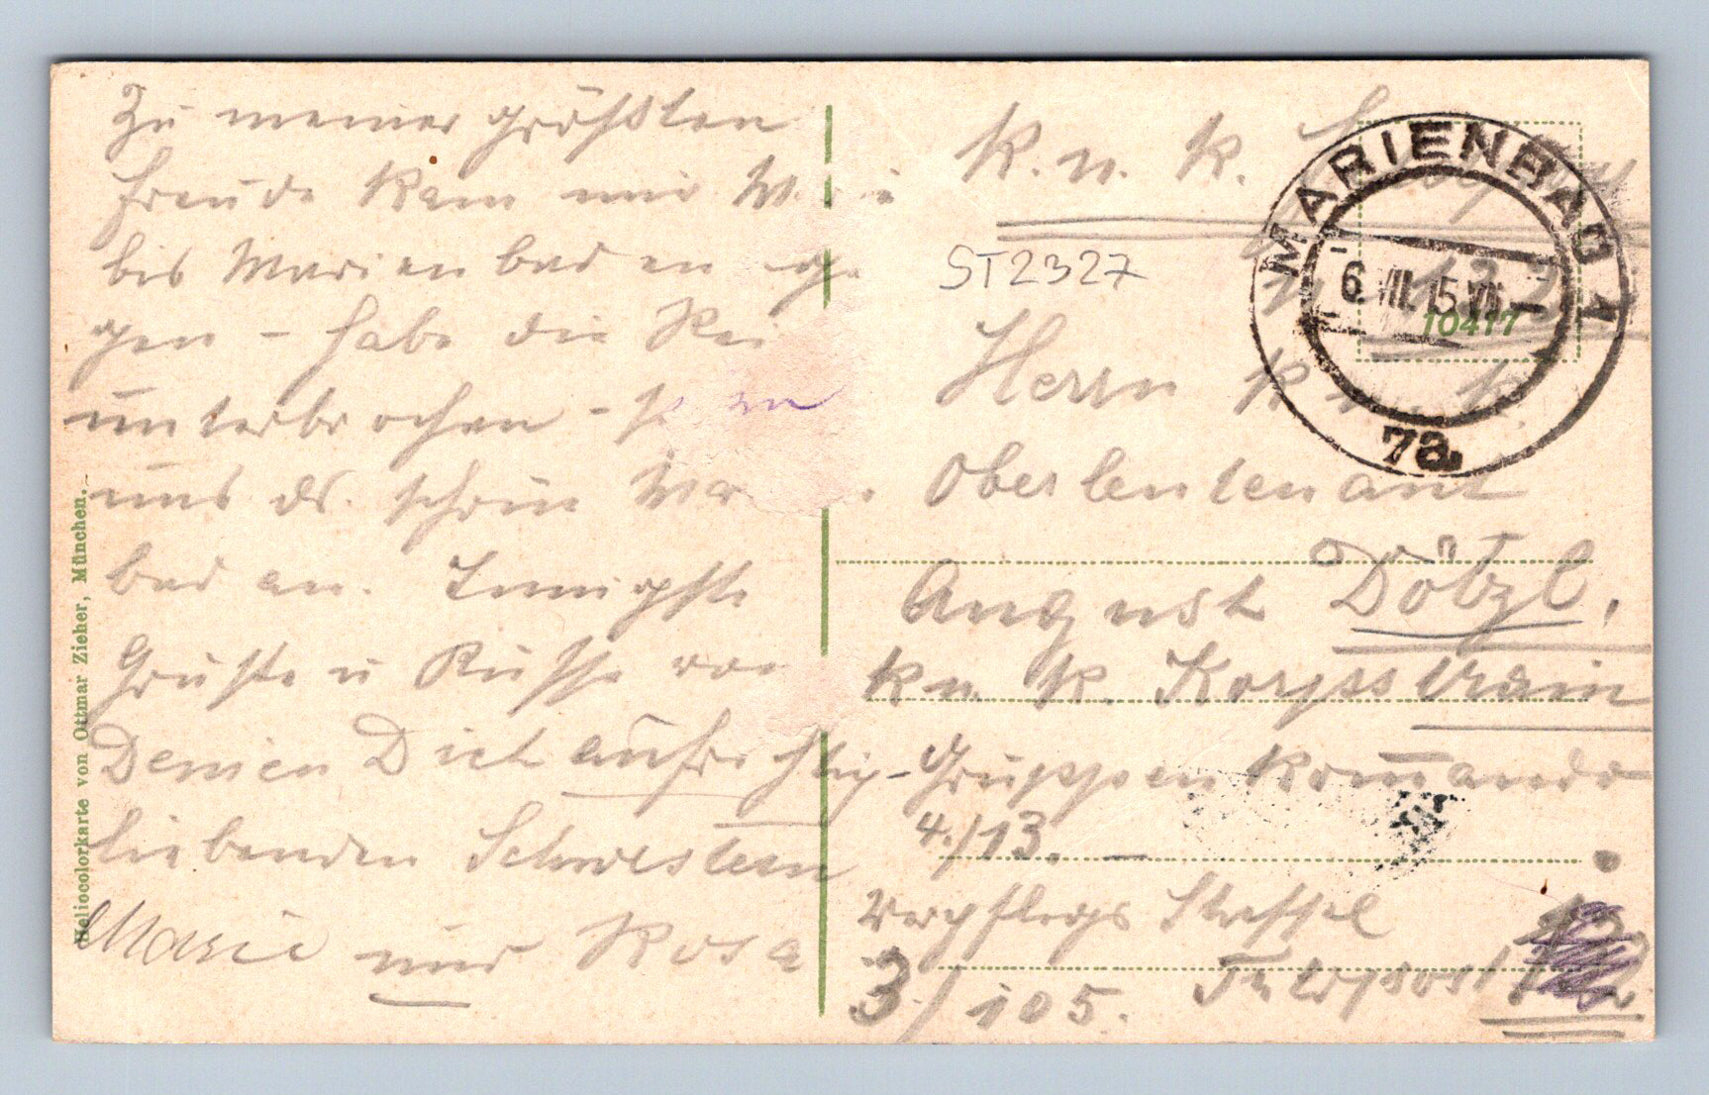 Zu meiner größten
Freude kam mir M
bis Marienbad en ge
gen – habe die Rei
unterbrochen –
uns ds. schöne Ma
bad an. Innigste
Grüße u Küsse von
Deinen Dich aufrichtig
liebenden Schwestern
Marie und Rosa
Heliocolorkarte von Ottmar Zieher, München.
K. u. K.
ST2327
MARIENBAD 1
6. VII. 15 VII
7a
10417
Herrn K. u. K.
Oberleutenant
August Dötzl,
K u. K. Korpsstrain
Gruppen Komando
4./13. —
Verpflegs Staffel
3./105. Feldpost